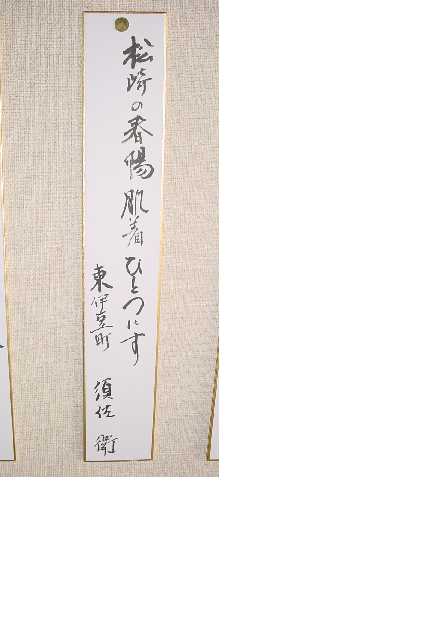 松崎の春陽肌着ひとつにす
東伊豆町 須佐 衛